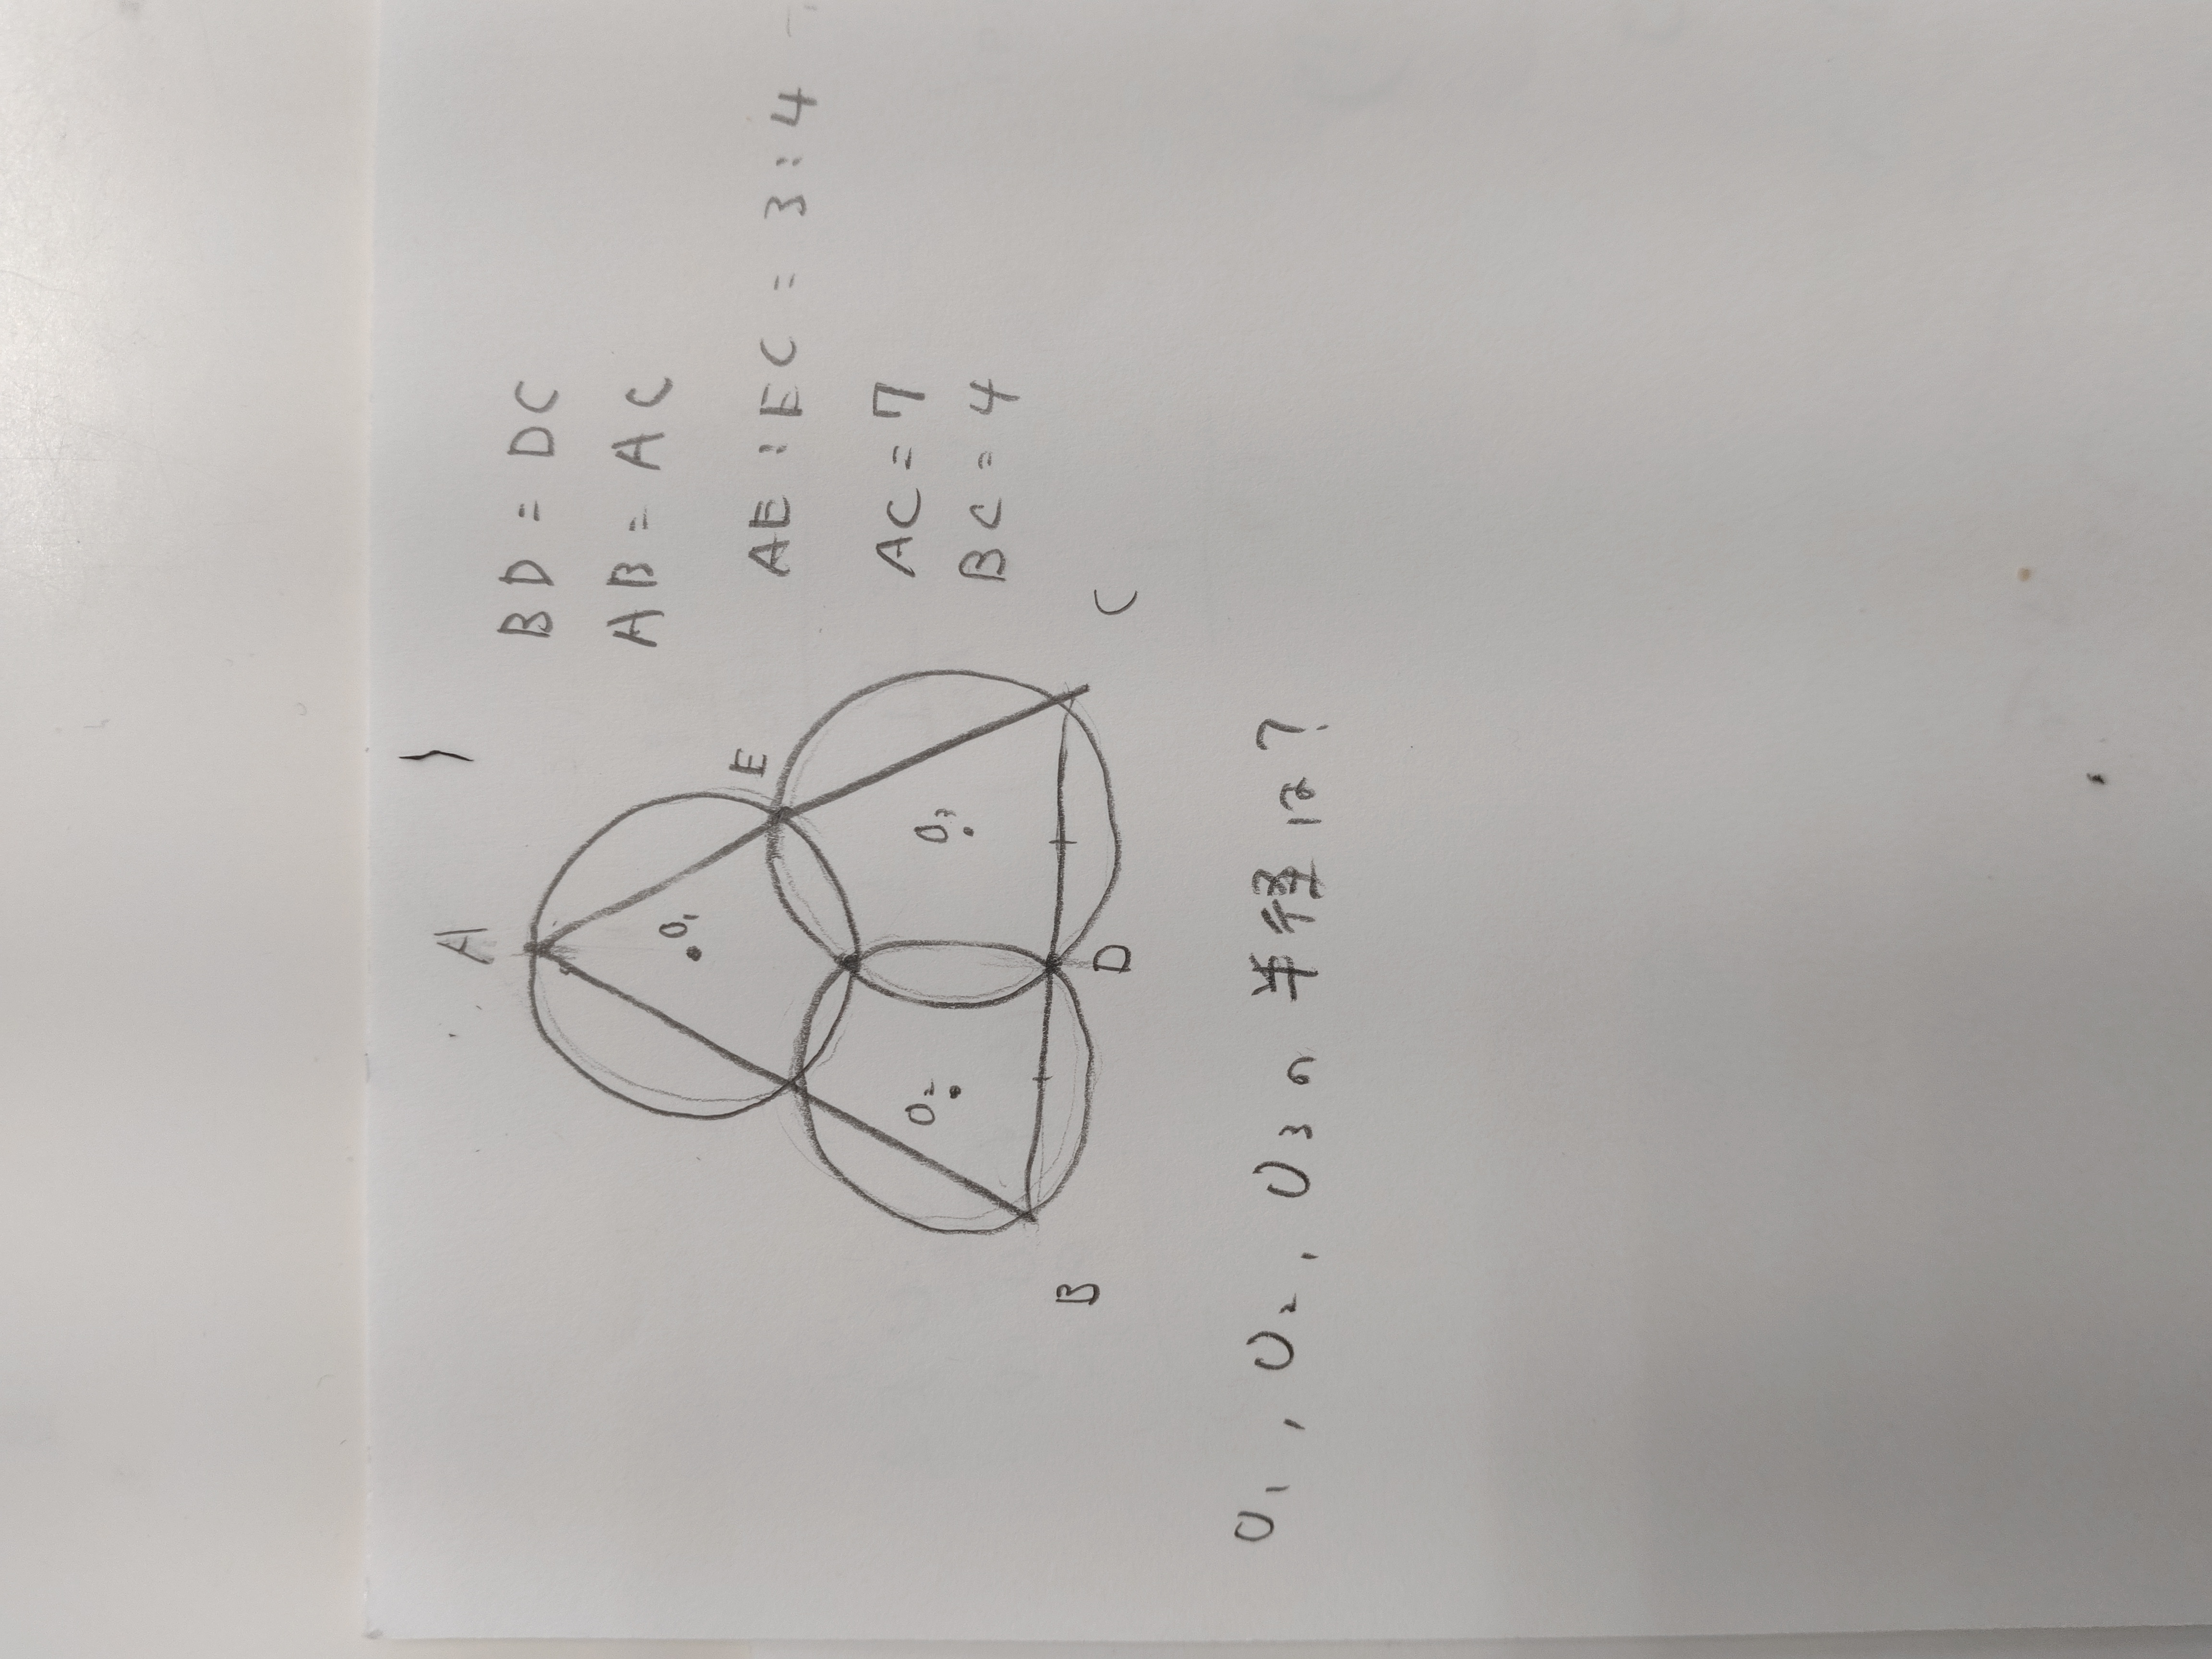 BD = DC
AB = AC
AE : EC = 3 : 4
AC = 7
BC = 4
A
E
O₁
O₂
O₃
B
D
C
O₁, O₂, O₃の半径は?